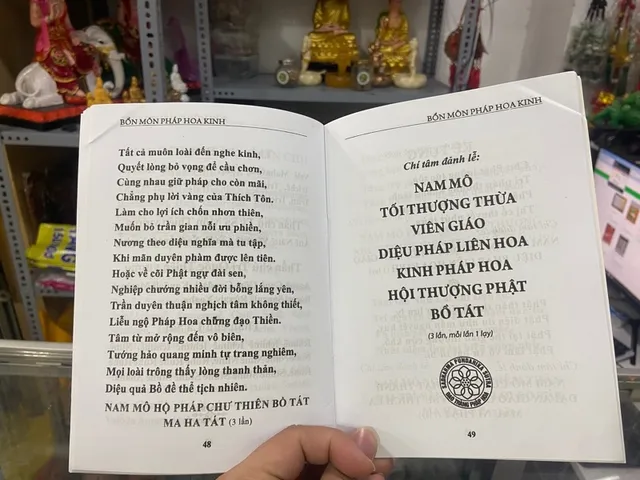 BỔN MÔN PHÁP HOA KINH
Tất cả muôn loài đến nghe kinh,
Quyết lòng bỏ vọng để cầu chơn,
Cùng nhau giữ pháp cho còn mãi,
Chẳng phụ lời vàng của Thích Tôn.
Làm cho lợi ích chốn nhơn thiên,
Muốn bỏ trần gian nỗi ưu phiền,
Nương theo diệu nghĩa mà tu tập,
Khi mãn duyên phàm được lên tiên.
Hoặc về cõi Phật ngự đài sen,
Nghiệp chướng nhiều đời bỗng lắng yên,
Trần duyên thuận nghịch tâm không thiết,
Liễu ngộ Pháp Hoa chứng đạo Thiền.
Tâm từ mở rộng đến vô biên,
Tướng hảo quang minh tự trang nghiêm,
Mọi loài trông thấy lòng thanh thản,
Diệu quả Bồ đề thể tịch nhiên.
NAM MÔ HỘ PHÁP CHƯ THIÊN BỒ TÁT
MA HA TÁT (3 lần)
48
BỔN MÔN PHÁP HOA KINH
Chí tâm đảnh lễ:
NAM MÔ
TỐI THƯỢNG THỪA
VIÊN GIÁO
DIỆU PHÁP LIÊN HOA
KINH PHÁP HOA
HỘI THƯỢNG PHẬT
BỒ TÁT
(3 lần, mỗi lần 1 lạy)
SADHARMA PUNDARIKA SUTRA
49